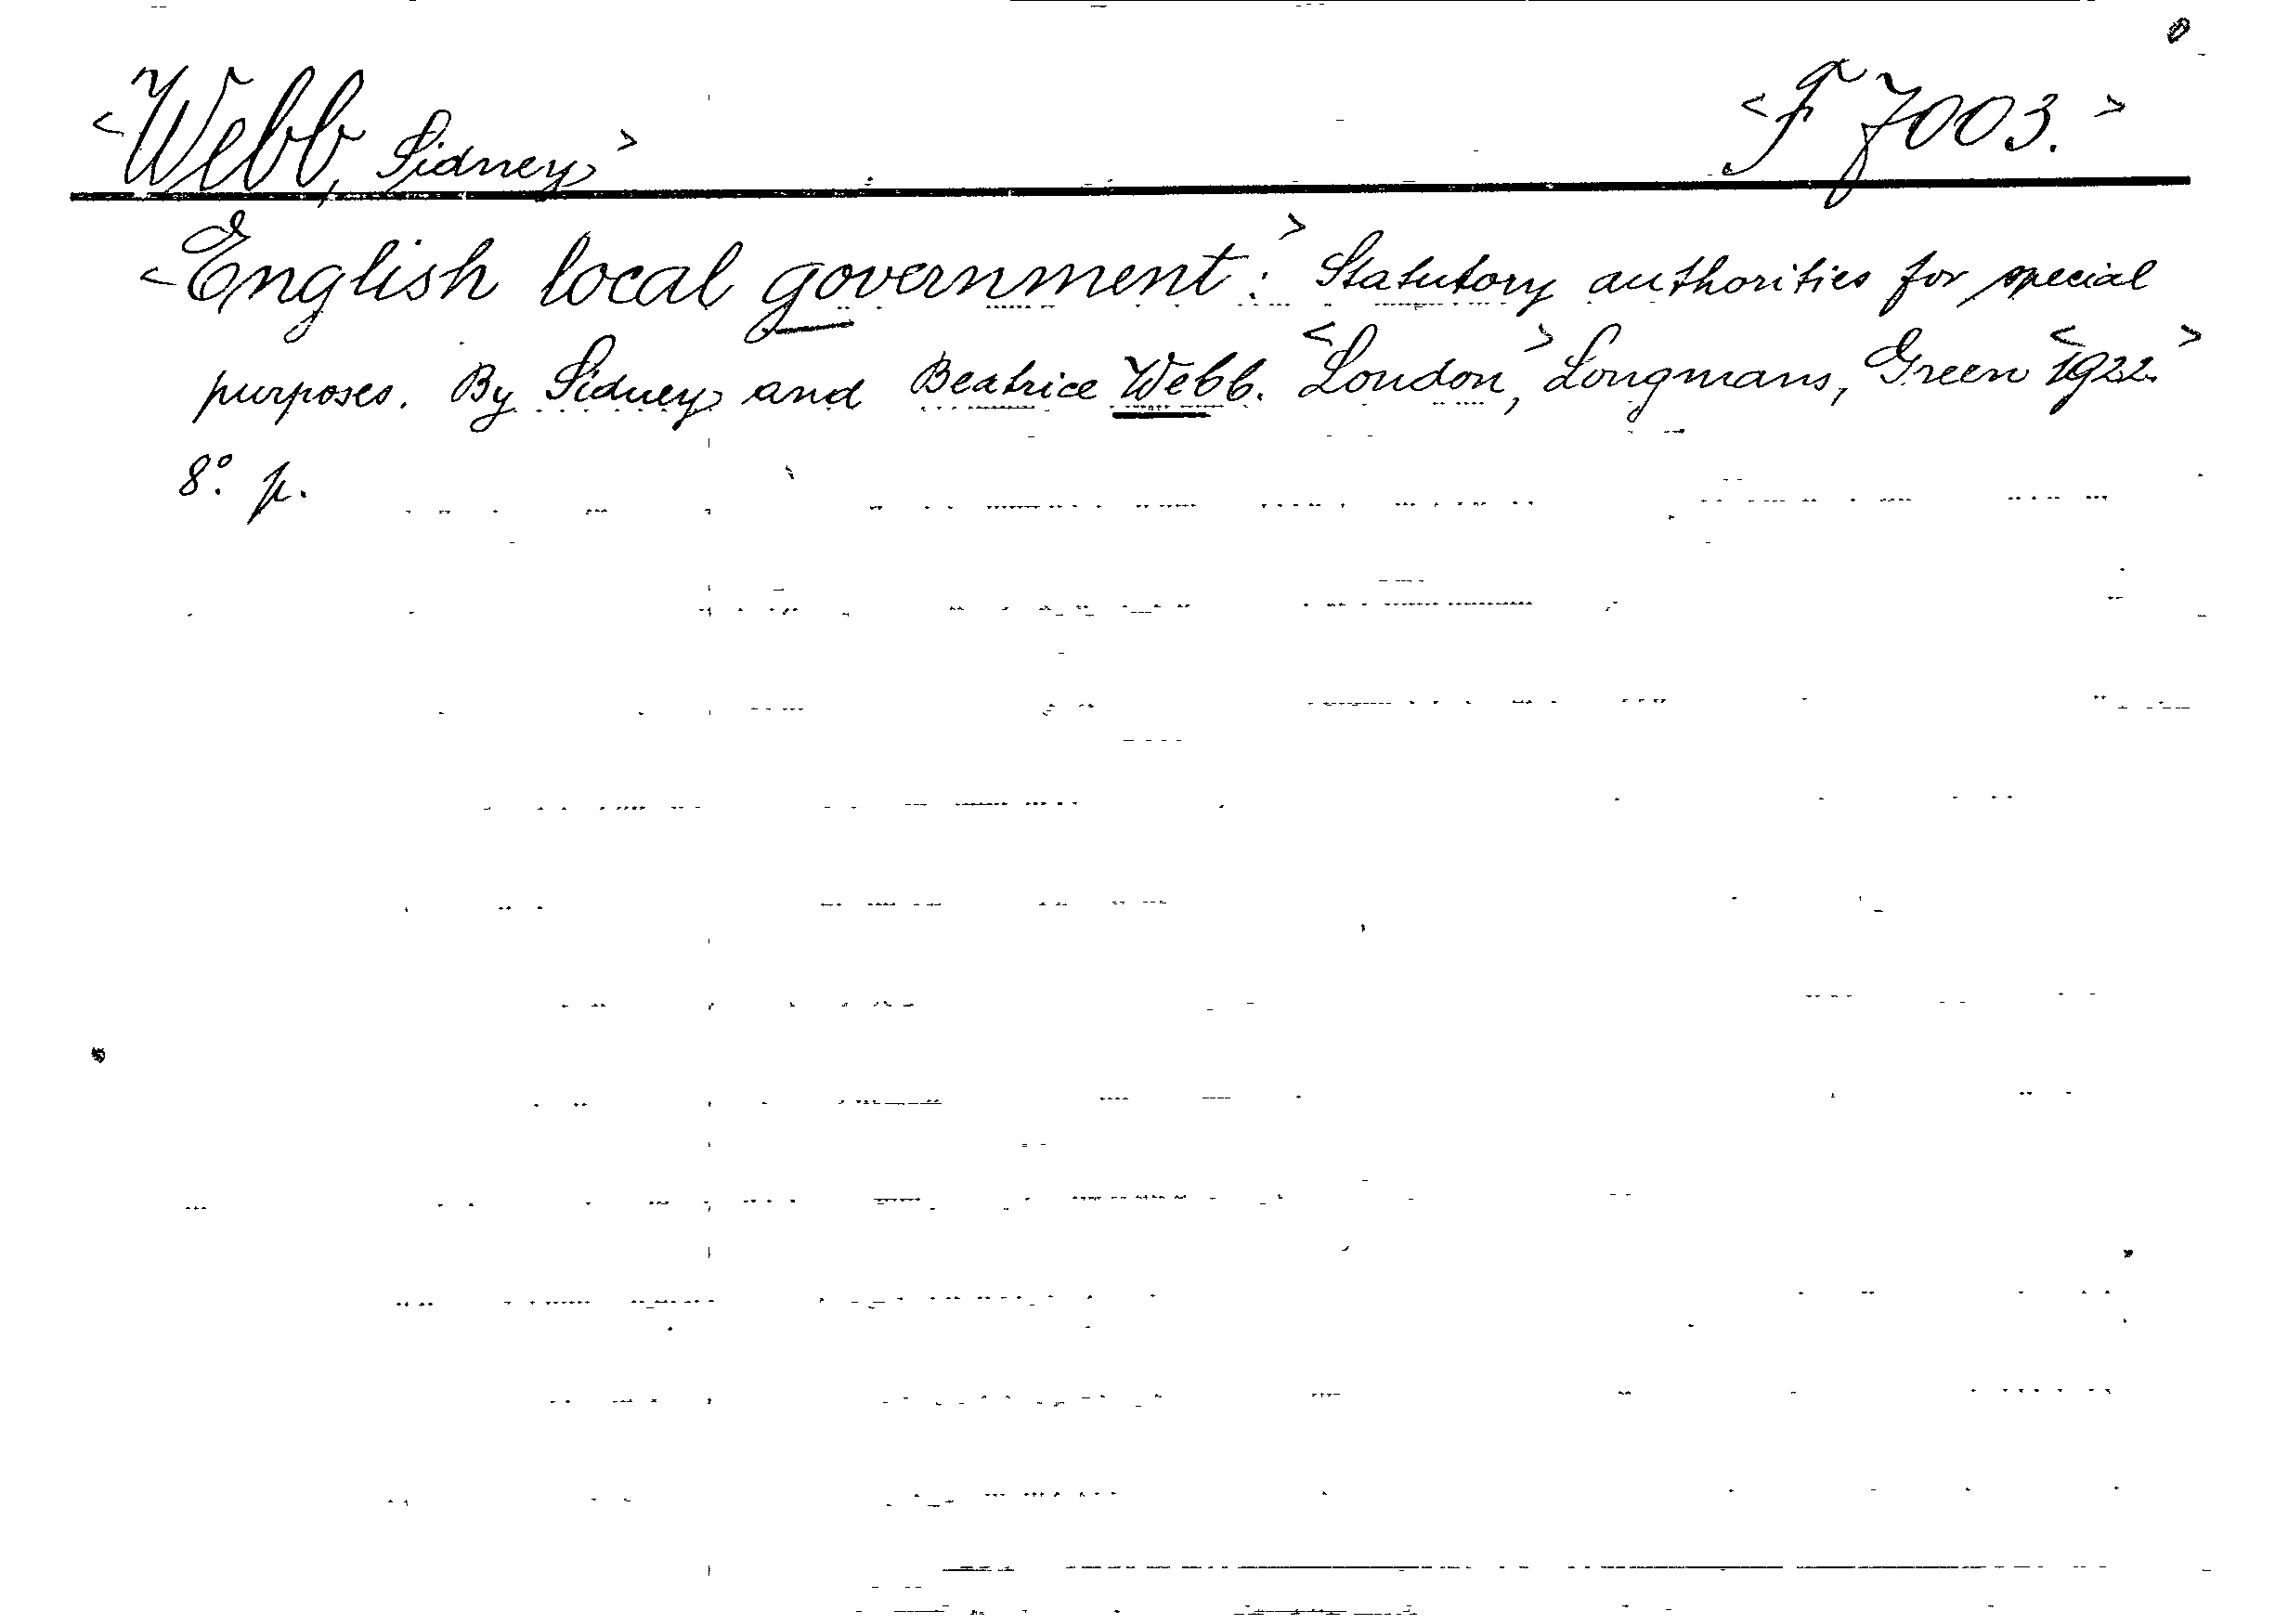 <Webb, Sidney> <F 7003.>
<English local government:> Statutory authorities for special
purposes. By Sidney and Beatrice Webb. <London,> Longmans, Green <1922.>
8°. p.